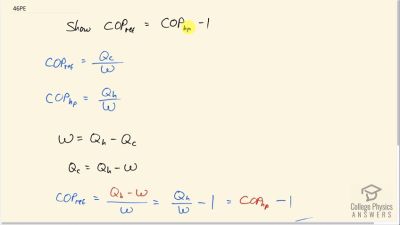 46PE
Show COP_ref = COP_hp - 1
COP_ref = Q_c / W
COP_hp = Q_h / W
W = Q_h - Q_c
Q_c = Q_h - W
COP_ref = (Q_h - W) / W = Q_h / W - 1 = COP_hp - 1
College Physics
ANSWERS